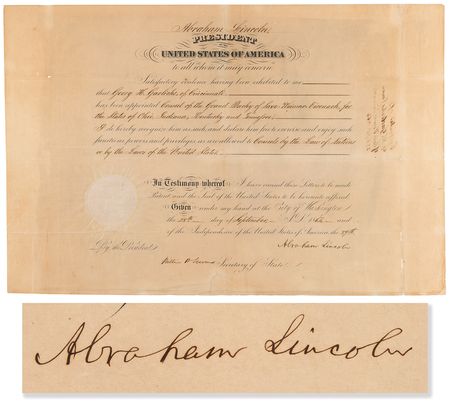 Abraham Lincoln,
PRESIDENT
OF THE
UNITED STATES OF AMERICA
to all whom it may concern
Satisfactory evidence having been exhibited to me
that Georg H. Garlichs, of Cincinnati
has been appointed Consul of the Grand Duchy of Saxe Weimar Eisenach, for
the States of Ohio, Indiana, Kentucky and
I do hereby recognize him as such, and declare him free to exercise and enjoy such
functions powers and privileges as are allowed to Consuls by the Law of Nations
or by the Laws of the United States
In Testimony whereof I have caused these Letters to be made
Patent and the Seal of the United States to be hereunto affixed
Given under my hand at the City of Washington
the day of September A.D. 186 and
of the Independence of the United States of America, the
Abraham Lincoln
By the President
William H Seward Secretary of State
Abraham Lincoln